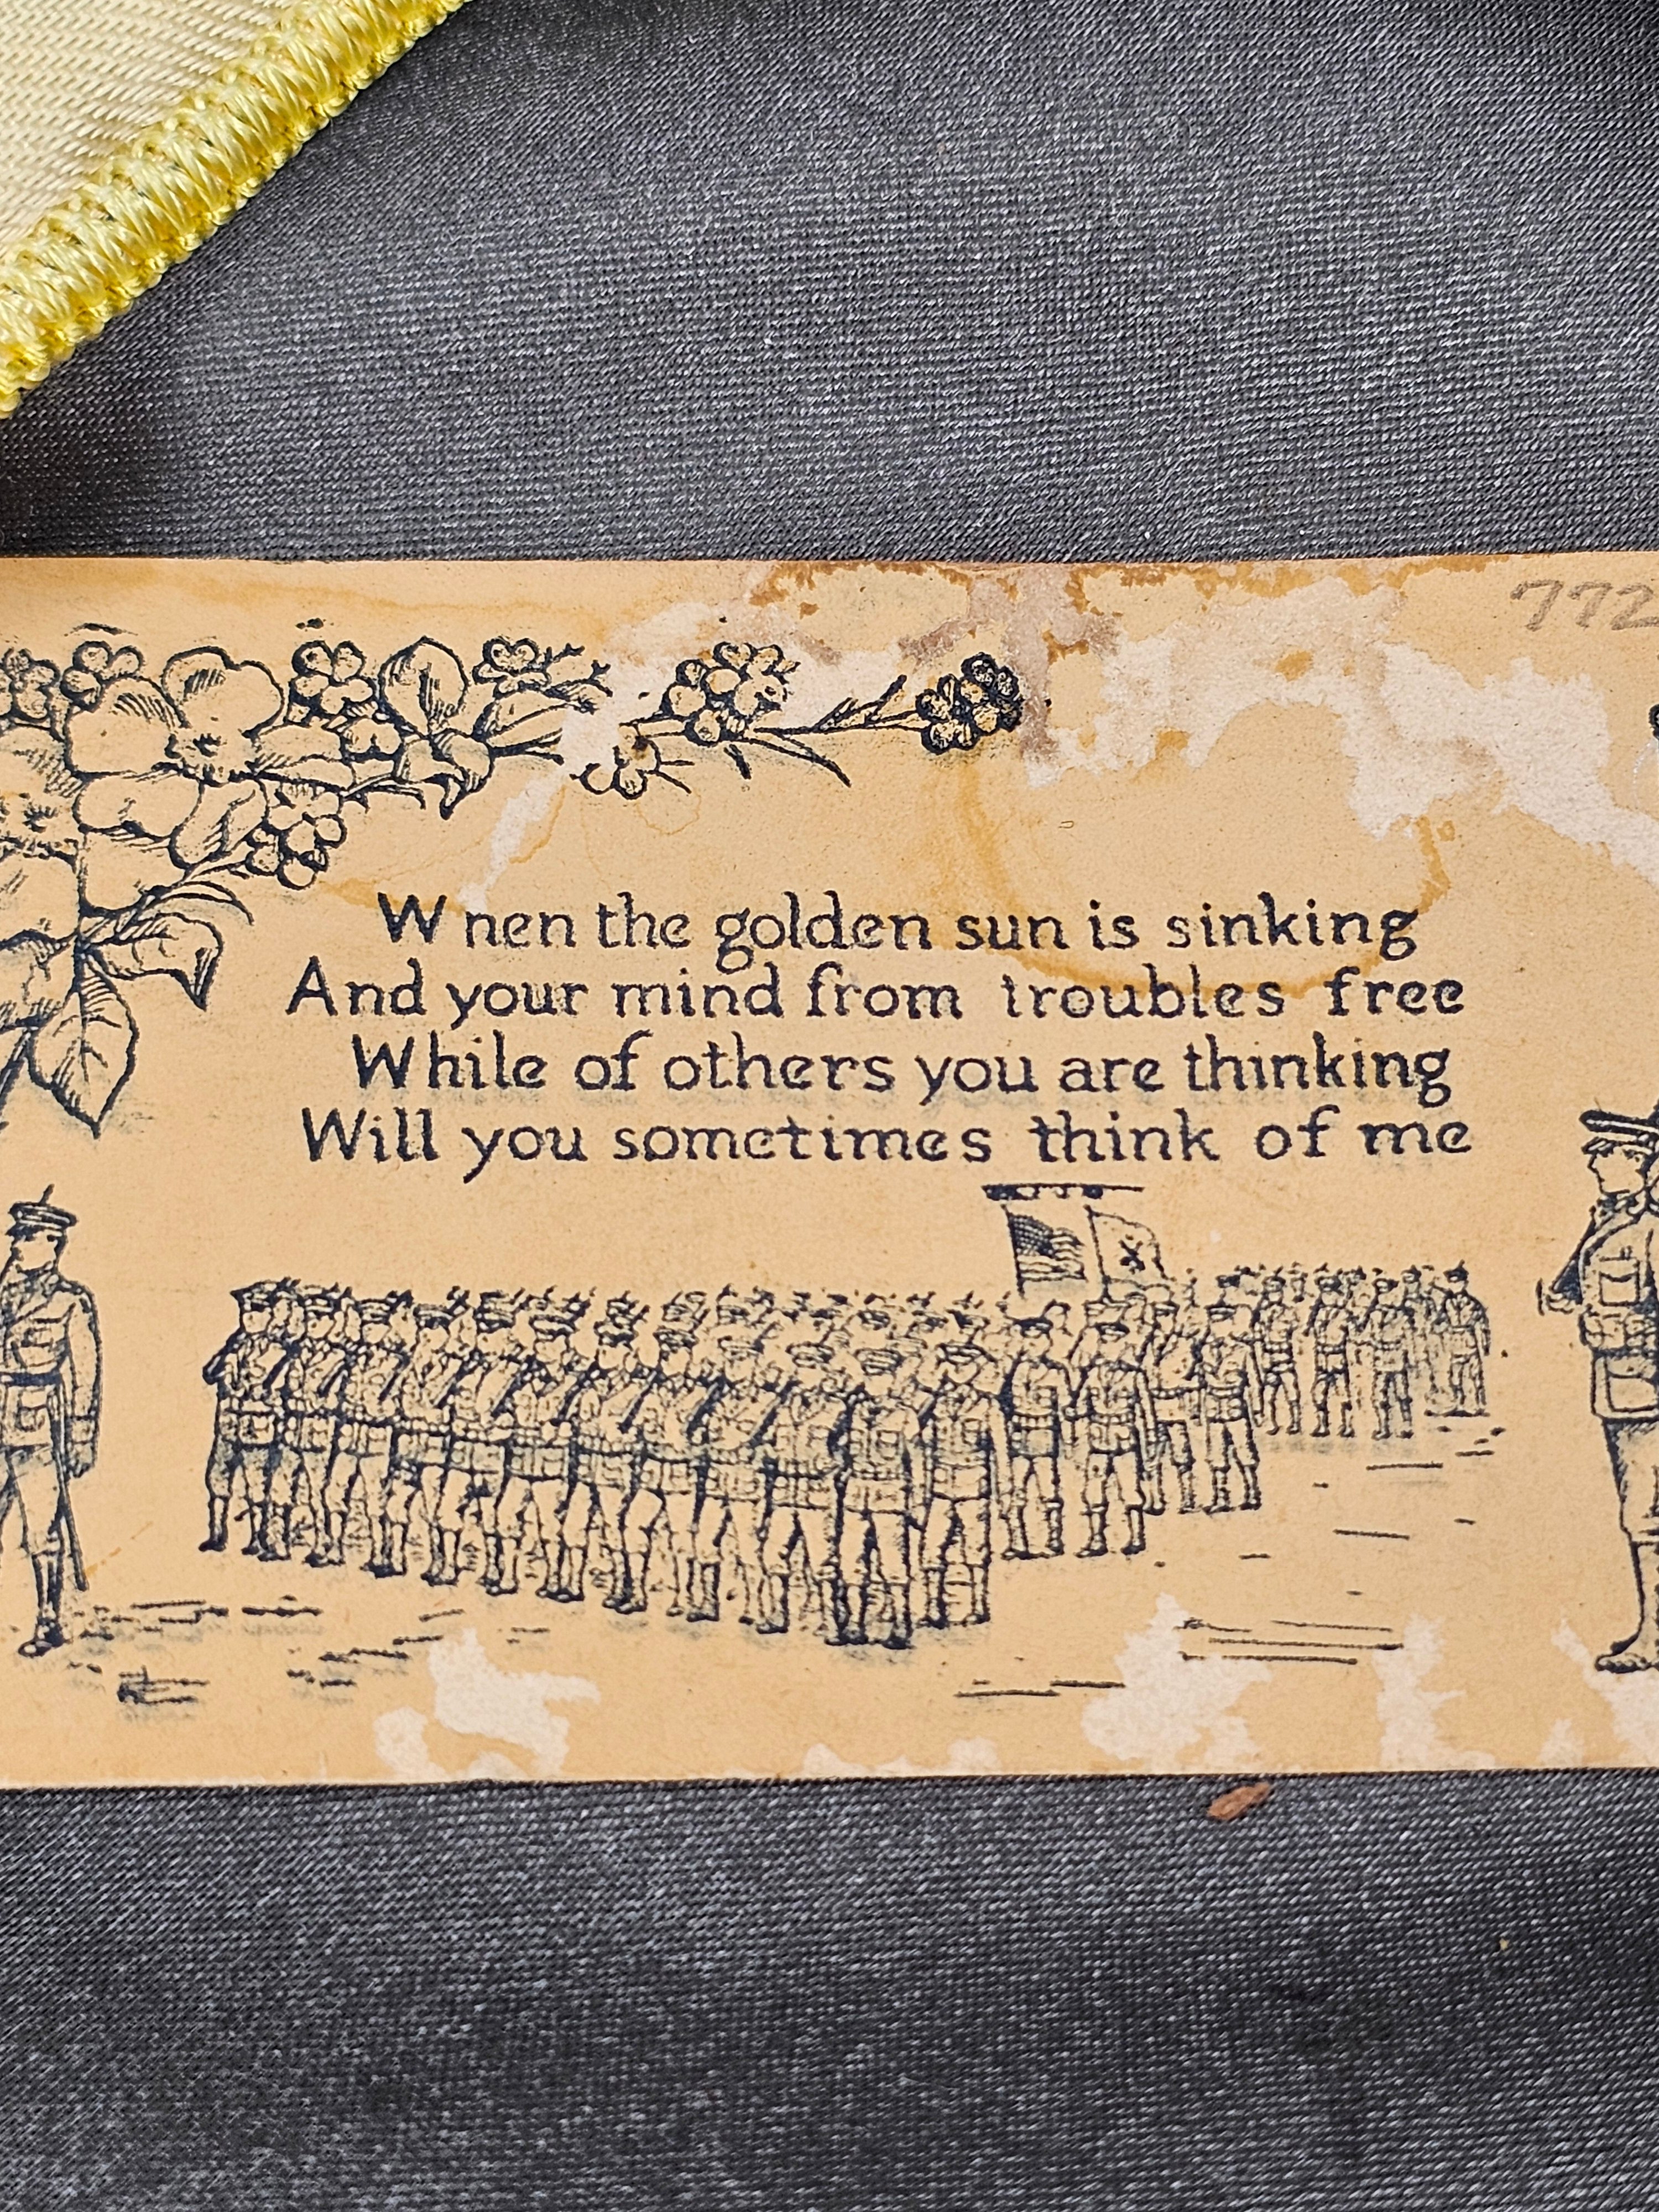 772
Wnen the golden sun is sinking
And your mind from troubles free
While of others you are thinking
Will you sometimes think of me